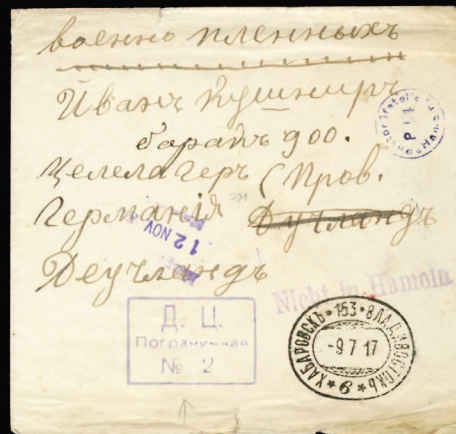 военно пленныхъ
Иванъ Кушниръ
баракъ 900.
Целелагеръ (Пров.
Германія Дучландъ
12 NOV
Деучландъ
Nicht in Hameln
Д. Ц.
Пограничная
№ 2
ХАБАРОВСКЪ * 153 * ВЛАДИВОСТОКЪ
-9 7 17
* б *